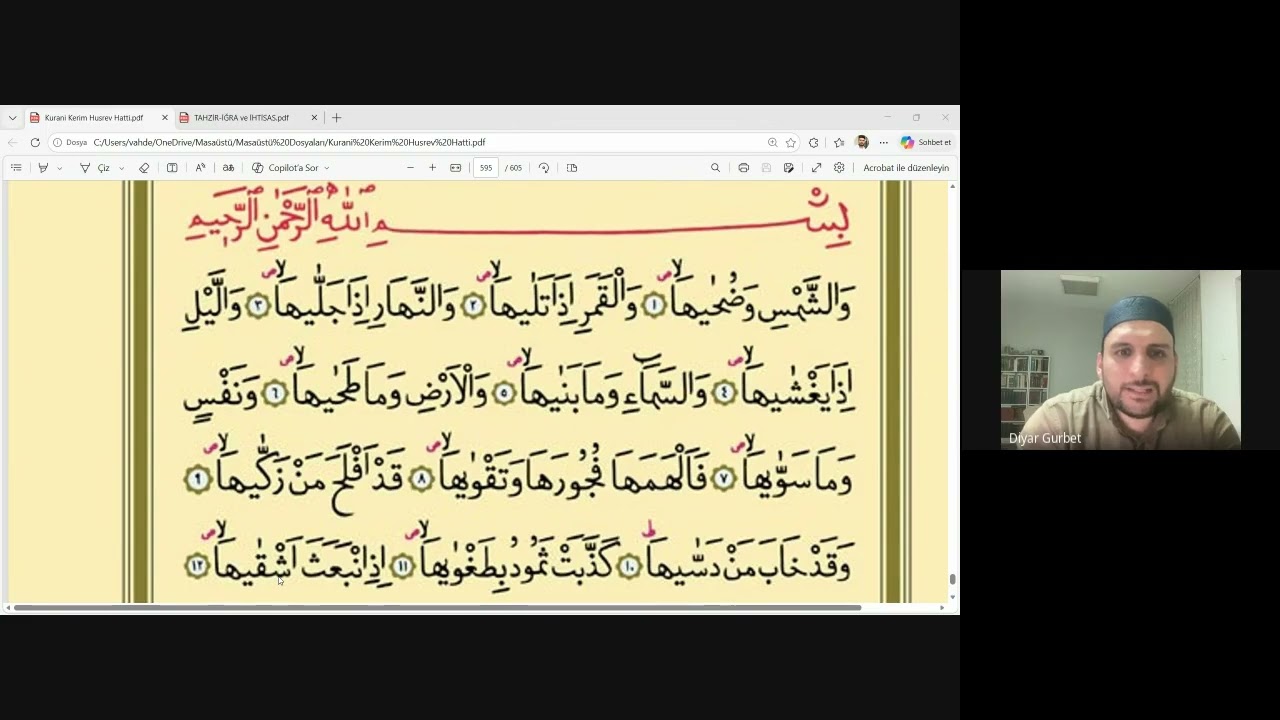 Kurani Kerim Husrev Hatti.pdf
TAHZİR-İĞRA ve İHTİSAS.pdf
Dosya C:/Users/vahde/OneDrive/Masaüstü/Masaüstü%20Dosyaları/Kurani%20Kerim%20Husrev%20Hatti.pdf
Sohbet et
Çiz
Copilot'a Sor
595 / 605
Acrobat ile düzenleyin
بِسْمِ اللّٰهِ الرَّحْمٰنِ الرَّحٖيمِ
وَالشَّمْسِ وَضُحٰيهَاۙ ﴿١﴾ وَالْقَمَرِ اِذَا تَلٰيهَاۙ ﴿٢﴾ وَالنَّهَارِ اِذَا جَلّٰيهَاۙ ﴿٣﴾ وَالَّيْلِ
اِذَا يَغْشٰيهَاۙ ﴿٤﴾ وَالسَّمَٓاءِ وَمَا بَنٰيهَاۙ ﴿٥﴾ وَالْاَرْضِ وَمَا طَحٰيهَاۙ ﴿٦﴾ وَنَفْسٍ
وَمَا سَوّٰيهَاۙ ﴿٧﴾ فَاَلْهَمَهَا فُجُورَهَا وَتَقْوٰيهَاۙ ﴿٨﴾ قَدْ اَفْلَحَ مَنْ زَكّٰيهَاۙ ﴿٩﴾
وَقَدْ خَابَ مَنْ دَسّٰيهَاؕ ﴿١٠﴾ كَذَّبَتْ ثَمُودُ بِطَغْوٰيهَاۙ ﴿١١﴾ اِذِ انْبَعَثَ اَشْقٰيهَاۙ ﴿١٢﴾
Diyar Gurbet